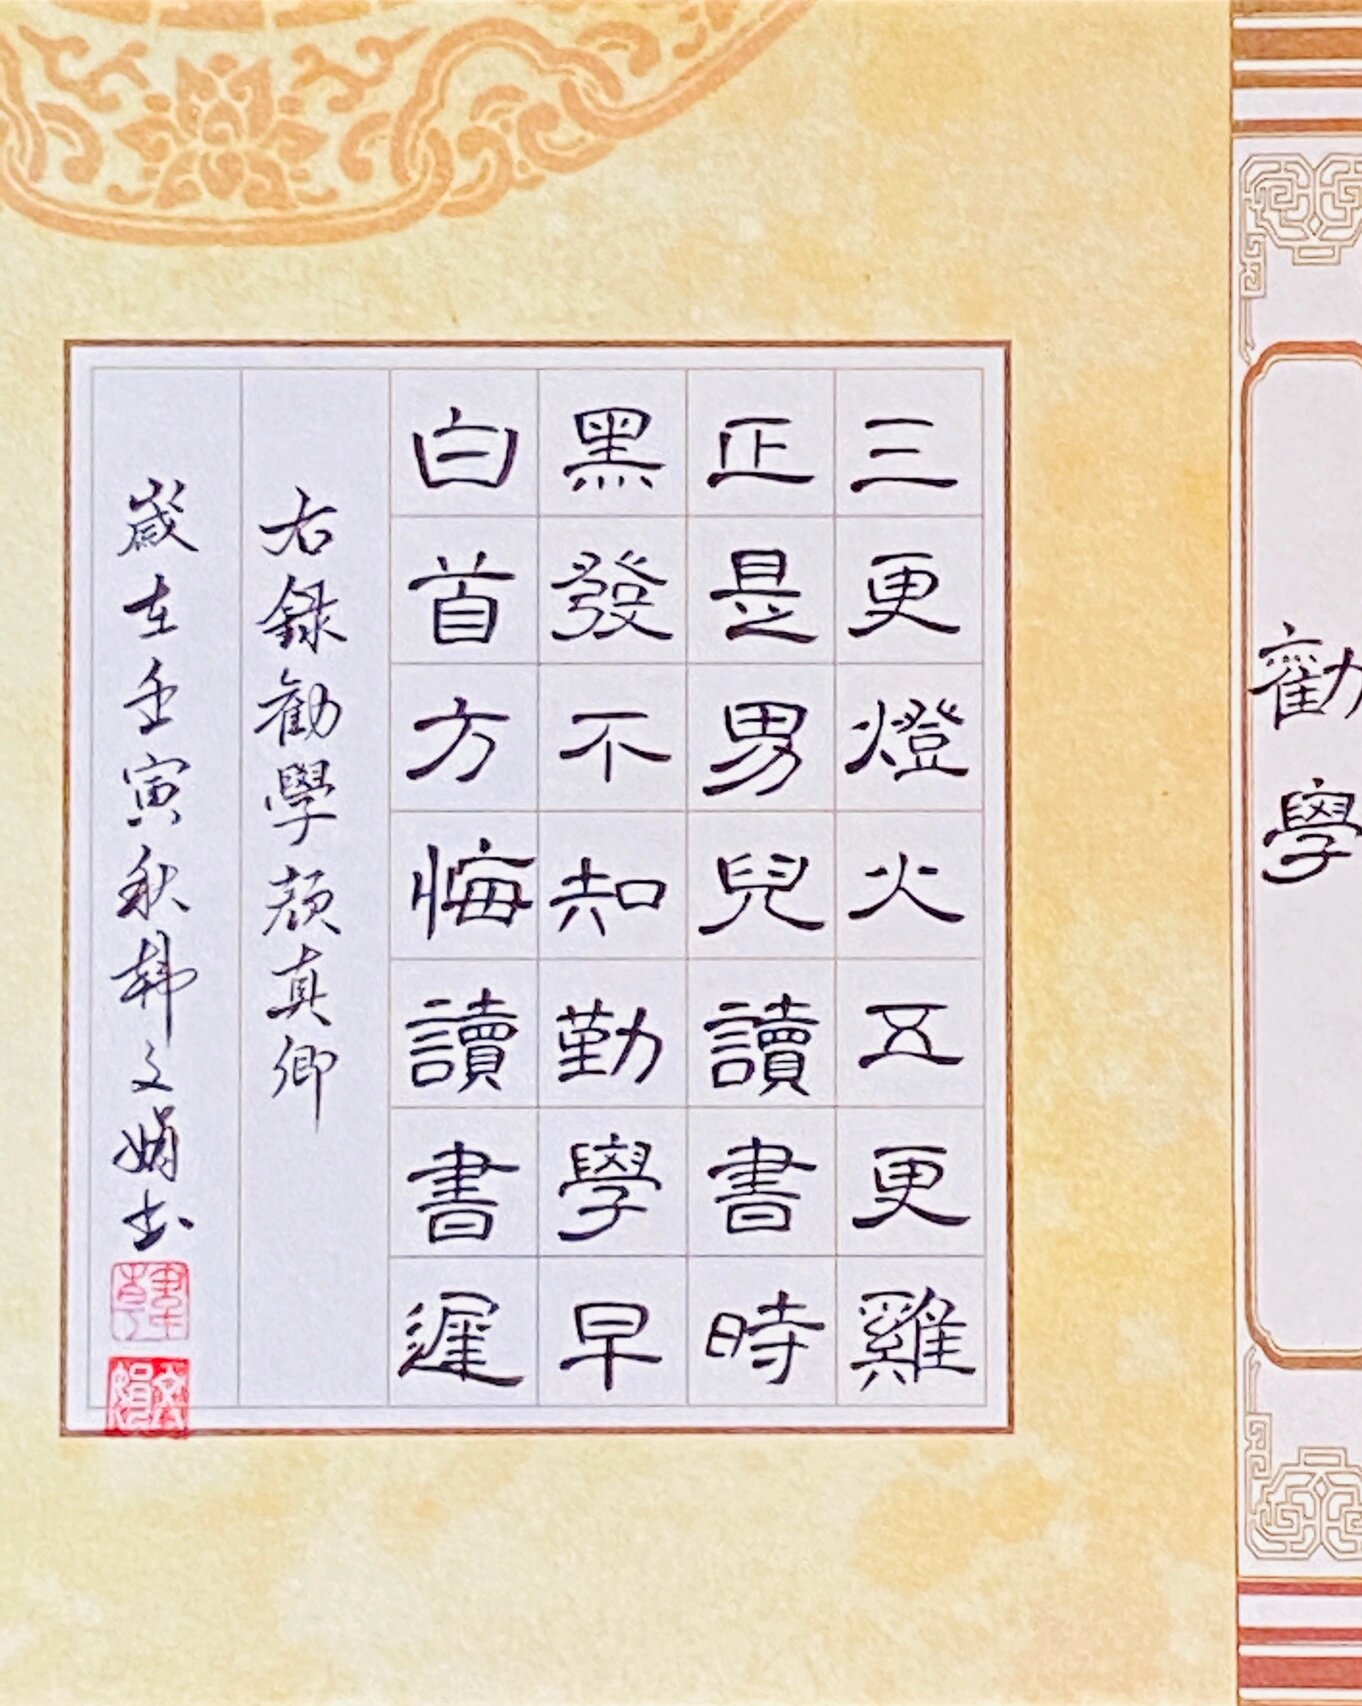 勸學
三更燈火五更雞
正是男兒讀書時
黑發不知勤學早
白首方悔讀書遲
右錄勸學顏真卿
歲在壬寅秋韩文娟书
文娟